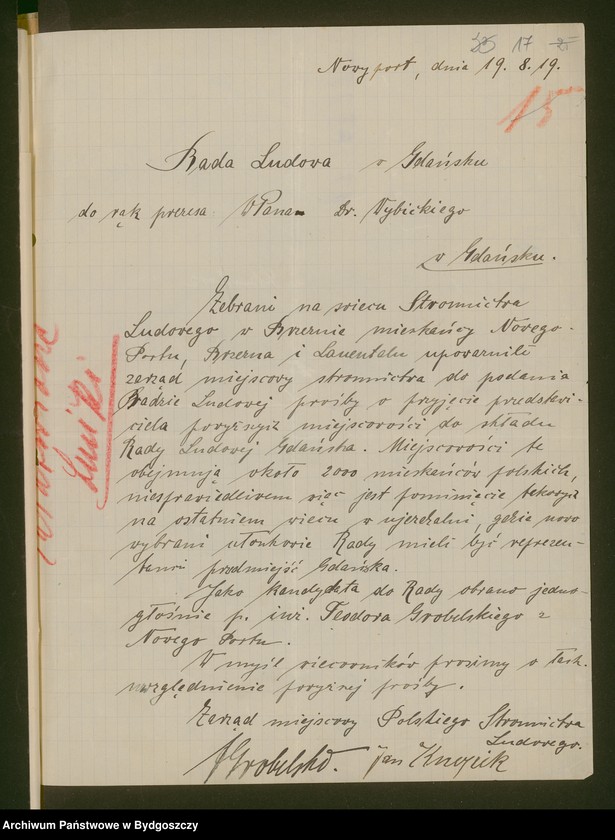 17
Nowyport, dnia 19. 8. 19.
15
Rada Ludowa w Gdańsku
do rąk prezesa WPana Dr. Wybickiego
w Gdańsku.
Zebrani na wiecu Stronnictra
Ludowego w Brzeźnie mieskańcy Nowego-
Portu, Brzezna i Lauentalu upoważnili
zarząd miejscowy stronnictwa do podania
Radzie Ludowej prośby o przyjęcie przedstwi-
ciela powyższyż miejscowości do składu
Rady Ludowej Gdańska. Miejscowości te
obejmują około 2000 mieskańców polskich,
niesprawiedliwem więc jest pominięcie tekowyż
na ostatniem wiecu w ujeżdżalni, gdzie nowo
wybrani członkowie Rady mieli być reprezen-
tanci przedmieść Gdańska.
Jako kandydata do Rady obrano jedno-
głośnie p. inż. Teodora Grobelskiego z
Nowego Portu.
W myśl wiecowników prosimy o łask.
uwzględnienie powyższej prośby.
Zarząd miejscowy Polskiego Stronnictra
Ludowego.
Grobelski. Jan
Archiwum Państwowe w Bydgoszczy